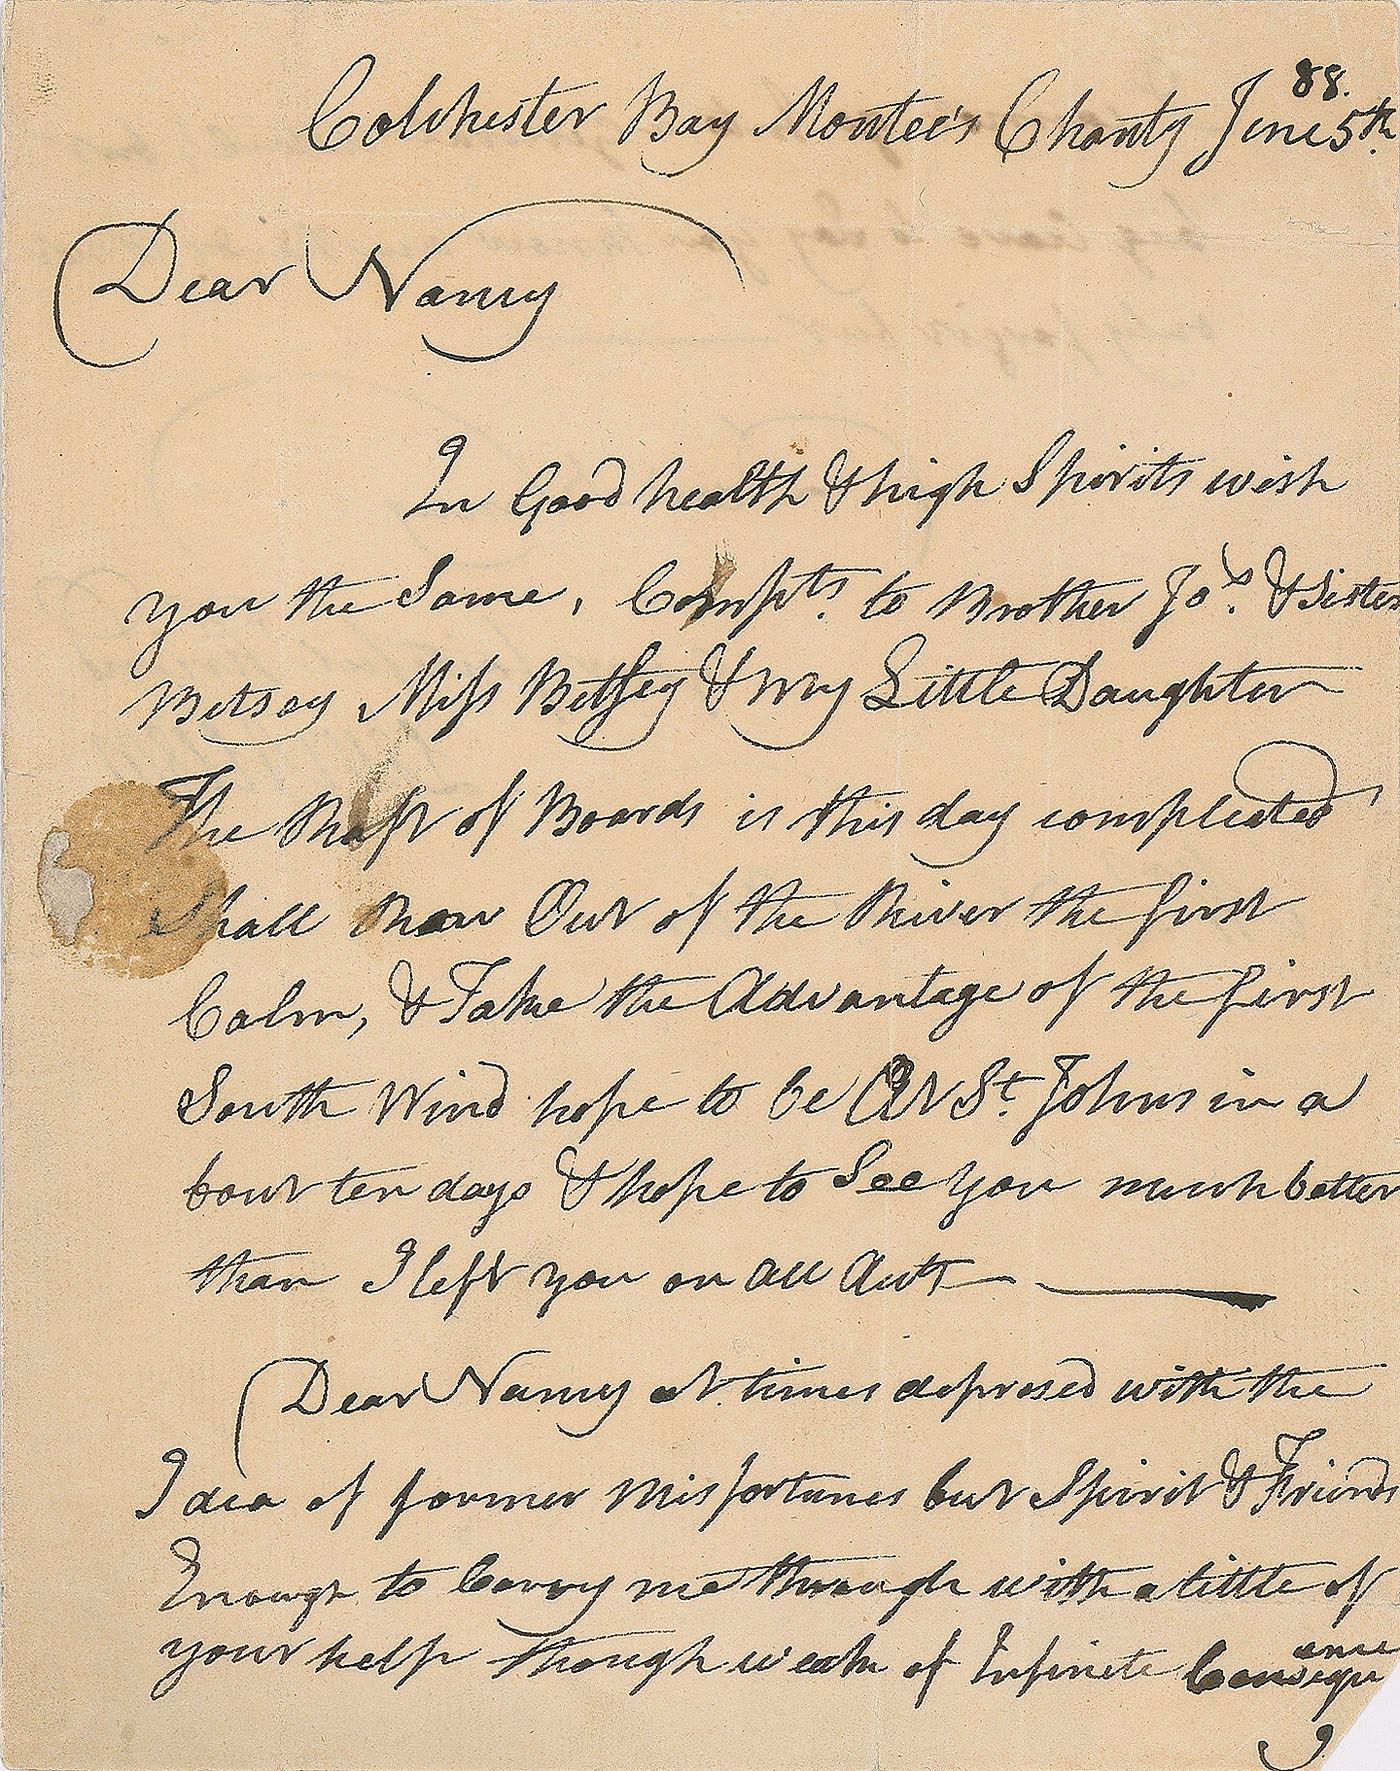 88.
Colchester Bay Montee's Chanty June 5th.
Dear Nancy
In Good health & high Spirits wish
you the Same, Compts. to Brother Jos. & Sister
Betsey Miss Betsey & My Little Daughter
The Raft of Boards is this day compleated
Shall Row Out of the River the first
Calm, & Take the Advantage of the first
South Wind hope to be At St. Johns in a
bout ten days & hope to See you much better
than I left you on all Acts
Dear Nancy at times depresed with the
Idea of former Misfortunes but Spirit & Friends
Enough to Carry me through with a little of
your help though weak of Infinite Consequence